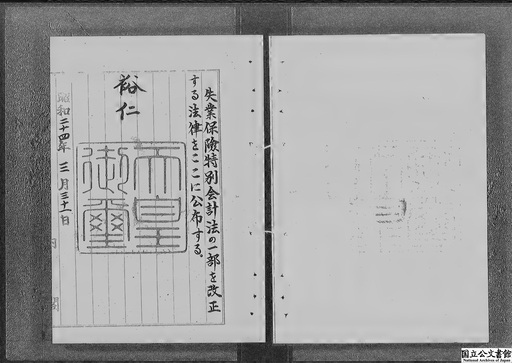 失業保険特別会計法の一部を改正
する法律をここに公布する。
裕仁
天皇
御璽
昭和二十四年三月三十一日
内閣
国立公文書館
National Archives of Japan